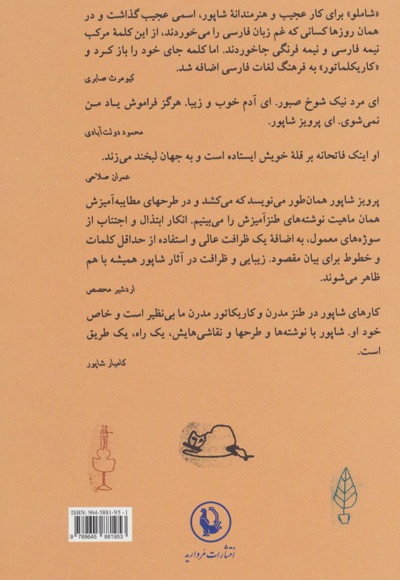 «شاملو» برای کار عجیب و هنرمندانهٔ شاپور، اسمی عجیب گذاشت و در
همان روزها کسانی که غم زبان فارسی را می‌خوردند، از این کلمهٔ مرکب
نیمه فارسی و نیمه فرنگی جاخوردند. اما کلمه جای خود را باز کرد و
«کاریکلماتور» به فرهنگ لغات فارسی اضافه شد.
کیومرث صابری
ای مرد نیک شوخ صبور. ای آدم خوب و زیبا. هرگز فراموش یاد من
نمی‌شوی. ای پرویز شاپور.
محمود دولت‌آبادی
او اینک فاتحانه بر قلهٔ خویش ایستاده است و به جهان لبخند می‌زند.
عمران صلاحی
پرویز شاپور همان‌طور می‌نویسد که می‌کشد و در طرحهای مطایبه‌آمیزش
همان ماهیت نوشته‌های طنزآمیزش را می‌بینیم. انکار ابتذال و اجتناب از
سوژه‌های معمول، به اضافهٔ یک ظرافت عالی و استفاده از حداقل کلمات
و خطوط برای بیان مقصود. زیبایی و ظرافت در آثار شاپور همیشه با هم
ظاهر می‌شوند.
اردشیر محصص
کارهای شاپور در طنز مدرن و کاریکاتور مدرن ما بی‌نظیر است و خاص
خود او. شاپور با نوشته‌ها و طرحها و نقاشی‌هایش، یک راه، یک طریق
است.
کامیار شاپور
ISBN: 964-5881-95-1
9 789645 881953
انتشارات مروارید